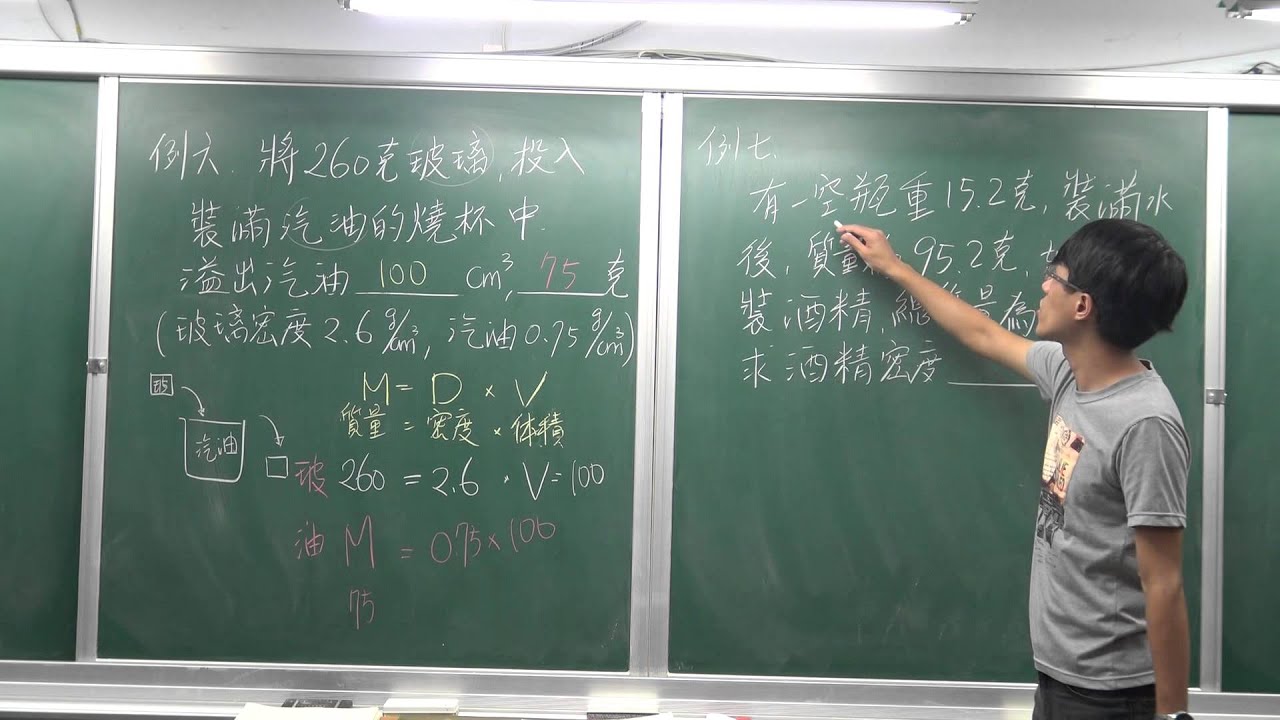 例六. 將260克玻璃, 投入
裝滿汽油的燒杯中.
溢出汽油 100 cm³, 75 克
(玻璃密度2.6 g/cm³, 汽油0.75 g/cm³)
M = D × V
質量 = 密度 × 体積
汽油
玻 260 = 2.6 · V = 100
油 M = 0.75 × 100
75
例七.
有一空瓶重15.2克, 裝滿水
後, 質量 95.2克,
裝酒精, 總質量為
求酒精密度